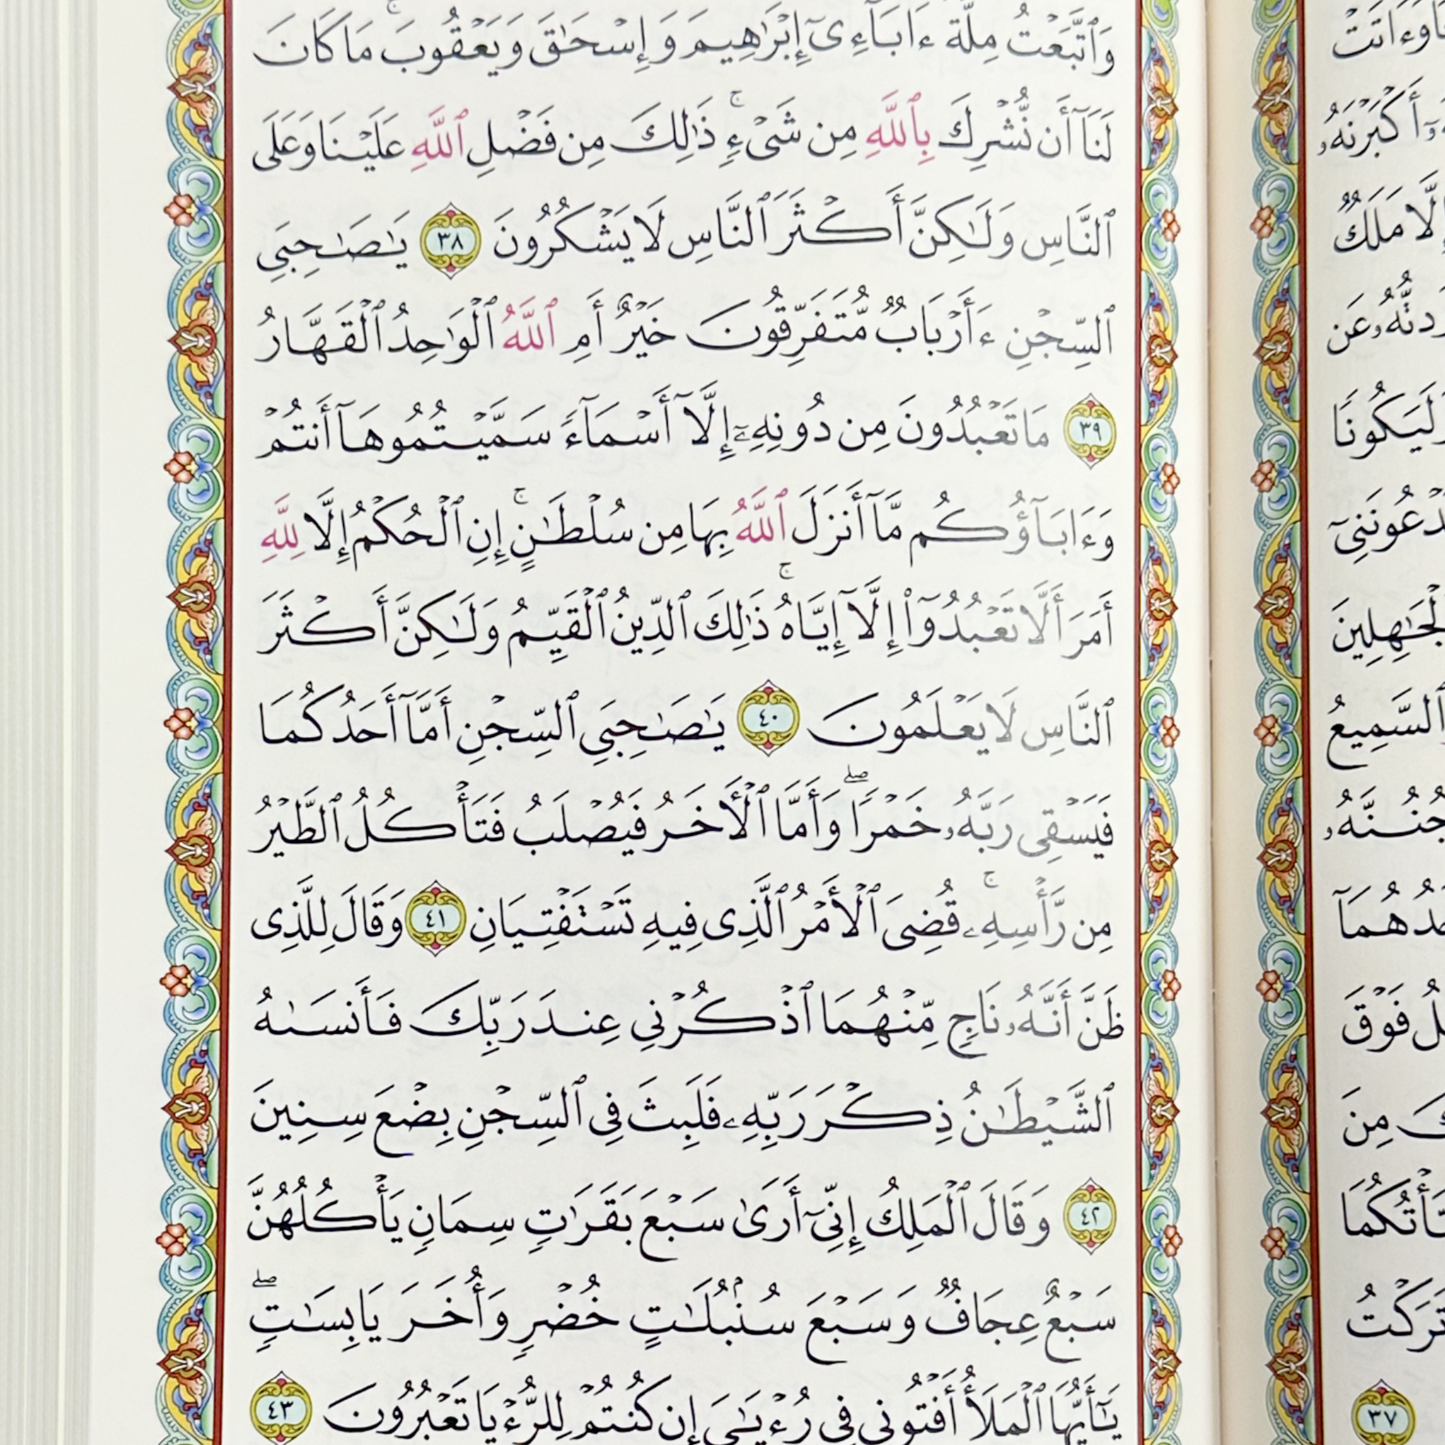 وَٱتَّبَعۡتُ مِلَّةَ ءَابَآءِيٓ إِبۡرَٰهِيمَ وَإِسۡحَٰقَ وَيَعۡقُوبَۚ مَا كَانَ
لَنَآ أَن نُّشۡرِكَ بِٱللَّهِ مِن شَيۡءٖۚ ذَٰلِكَ مِن فَضۡلِ ٱللَّهِ عَلَيۡنَا وَعَلَى
ٱلنَّاسِ وَلَٰكِنَّ أَكۡثَرَ ٱلنَّاسِ لَا يَشۡكُرُونَ ٣٨ يَٰصَٰحِبَيِ
ٱلسِّجۡنِ ءَأَرۡبَابٞ مُّتَفَرِّقُونَ خَيۡرٌ أَمِ ٱللَّهُ ٱلۡوَٰحِدُ ٱلۡقَهَّارُ
٣٩ مَا تَعۡبُدُونَ مِن دُونِهِۦٓ إِلَّآ أَسۡمَآءٗ سَمَّيۡتُمُوهَآ أَنتُمۡ
وَءَابَآؤُكُم مَّآ أَنزَلَ ٱللَّهُ بِهَا مِن سُلۡطَٰنٍۚ إِنِ ٱلۡحُكۡمُ إِلَّا لِلَّهِ
أَمَرَ أَلَّا تَعۡبُدُوٓاْ إِلَّآ إِيَّاهُۚ ذَٰلِكَ ٱلدِّينُ ٱلۡقَيِّمُ وَلَٰكِنَّ أَكۡثَرَ
ٱلنَّاسِ لَا يَعۡلَمُونَ ٤٠ يَٰصَٰحِبَيِ ٱلسِّجۡنِ أَمَّآ أَحَدُكُمَا
فَيَسۡقِي رَبَّهُۥ خَمۡرٗاۖ وَأَمَّا ٱلۡأٓخَرُ فَيُصۡلَبُ فَتَأۡكُلُ ٱلطَّيۡرُ
مِن رَّأۡسِهِۦۚ قُضِيَ ٱلۡأَمۡرُ ٱلَّذِي فِيهِ تَسۡتَفۡتِيَانِ ٤١ وَقَالَ لِلَّذِي
ظَنَّ أَنَّهُۥ نَاجٖ مِّنۡهُمَا ٱذۡكُرۡنِي عِندَ رَبِّكَ فَأَنسَىٰهُ
ٱلشَّيۡطَٰنُ ذِكۡرَ رَبِّهِۦ فَلَبِثَ فِي ٱلسِّجۡنِ بِضۡعَ سِنِينَ
٤٢ وَقَالَ ٱلۡمَلِكُ إِنِّيٓ أَرَىٰ سَبۡعَ بَقَرَٰتٖ سِمَانٖ يَأۡكُلُهُنَّ
سَبۡعٌ عِجَافٞ وَسَبۡعَ سُنۢبُلَٰتٍ خُضۡرٖ وَأُخَرَ يَابِسَٰتٖۖ
يَٰٓأَيُّهَا ٱلۡمَلَأُ أَفۡتُونِي فِي رُءۡيَٰيَ إِن كُنتُمۡ لِلرُّءۡيَا تَعۡبُرُونَ ٤٣
أَكۡبَرۡنَهُۥ
إِلَّا مَلَكٞ
عَن
وَلَيَكُونٗا
ٱلۡجَٰهِلِينَ
ٱلسَّمِيعُ
فَوۡقَ
مِنَ
تَرَكۡتُ
٣٧